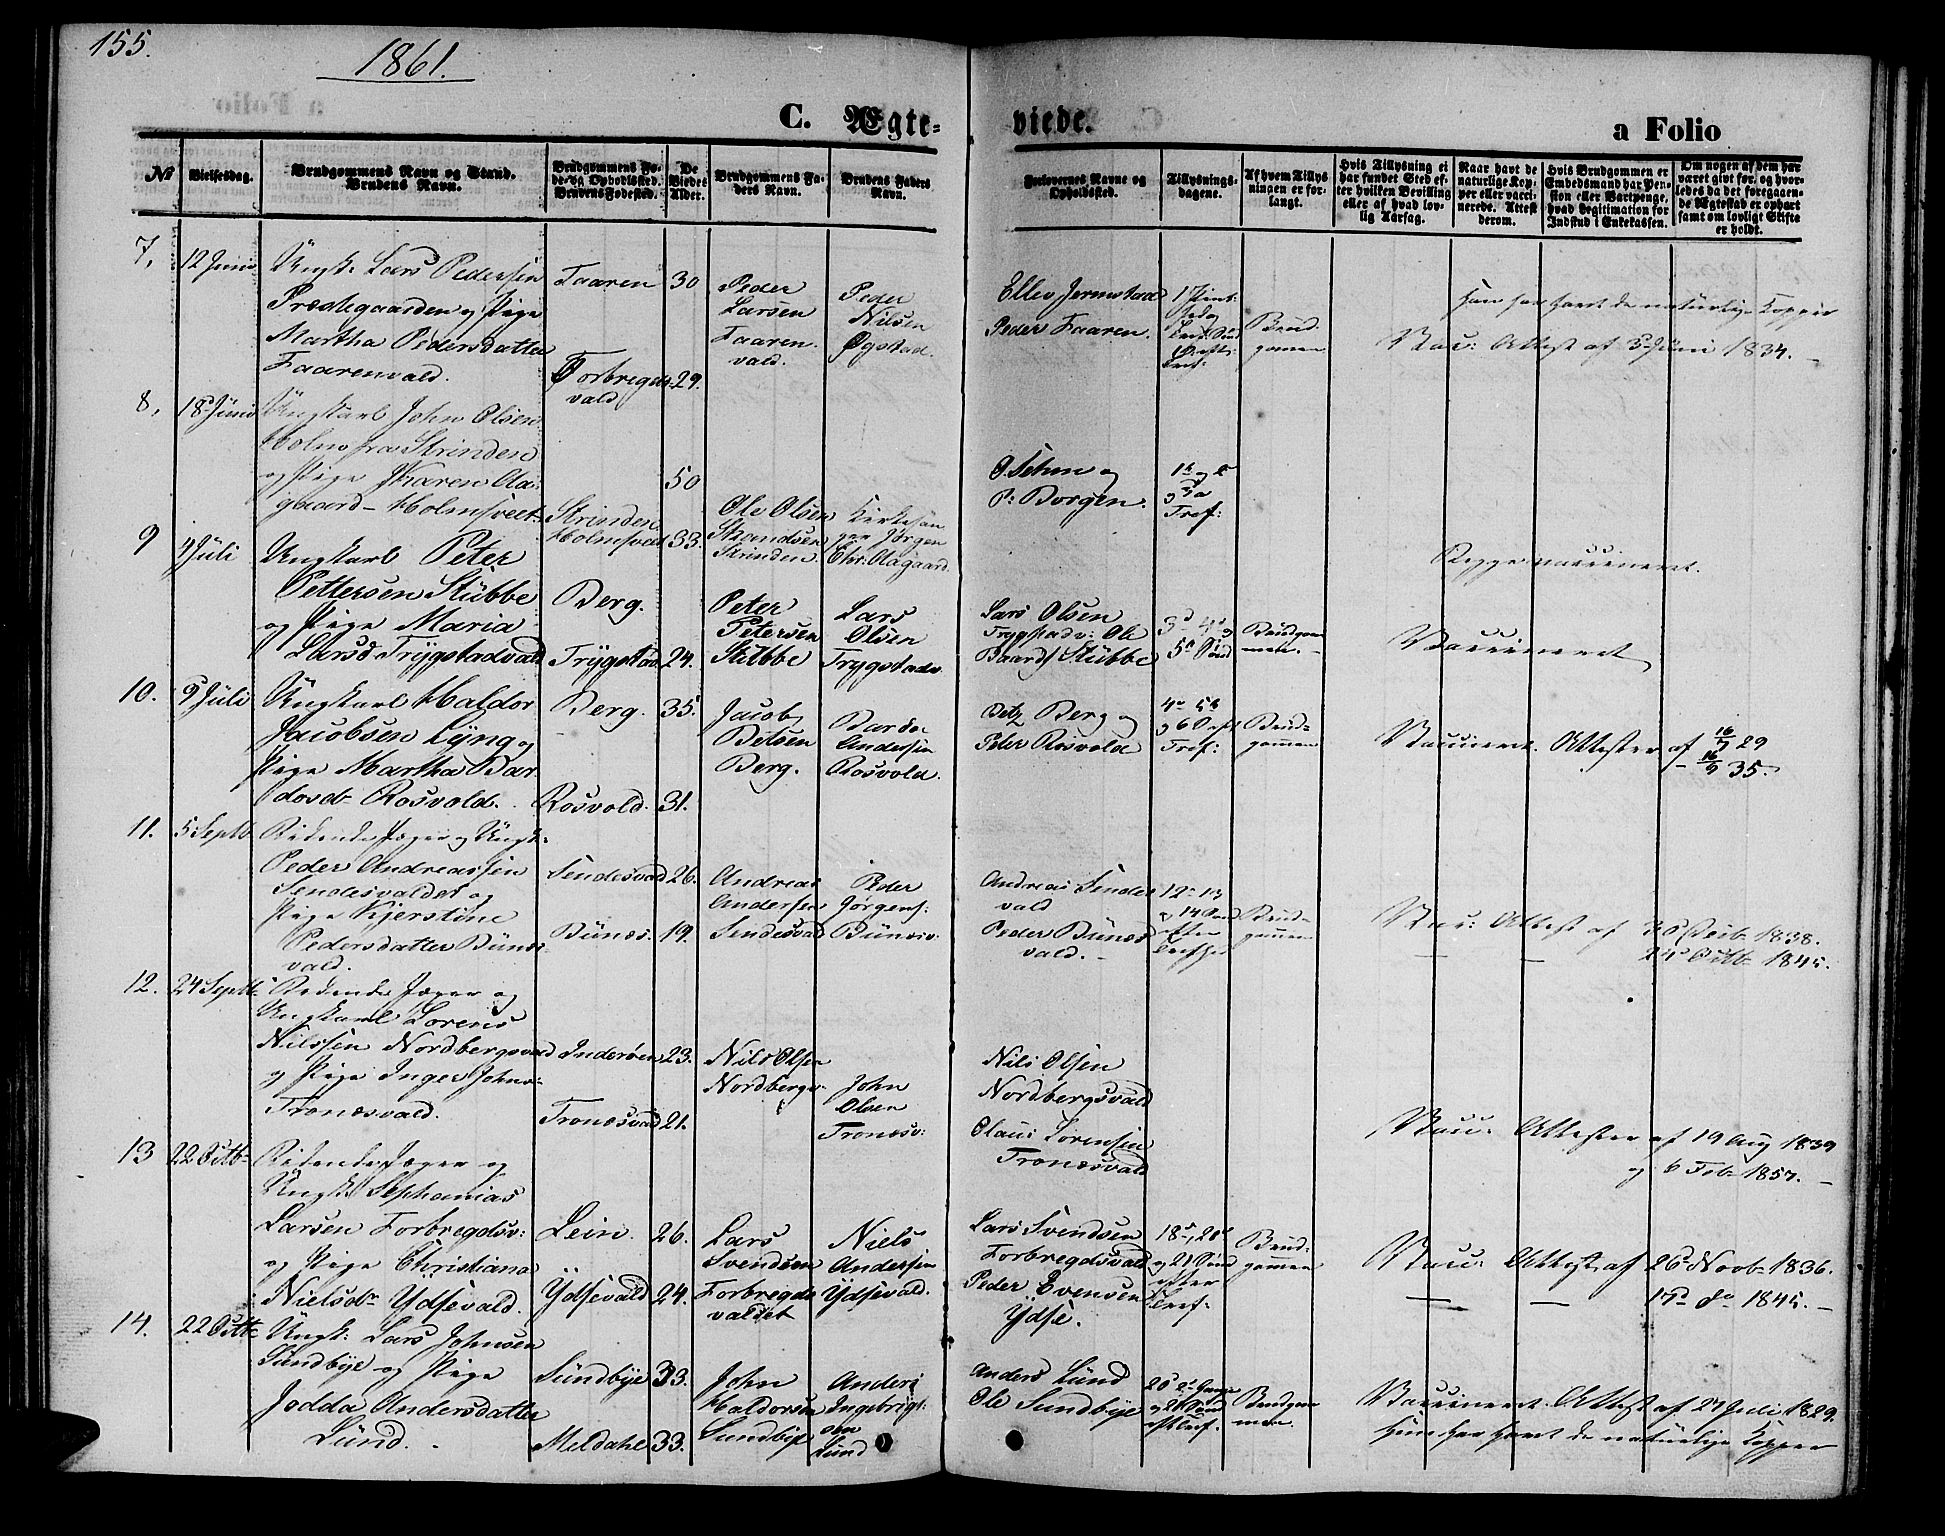 155.
1861.
C. Ægte-
viede.
a Folio
No
Vielsesdag.
Brudgommens Navn og Stand.
Brudens Navn.
Brudgommens Fø-
de- og Opholdssted.
Brudens Fødested.
De
Viedes
Alder.
Brudgommens Fa-
ders Navn.
Brudens Faders
Navn.
Forlovernes Navne og
Opholdssted.
Tillysnings-
dagene.
Af hvem Tillys
ningen er for-
langt.
Hvis Tillysning ei
har fundet Sted ef-
ter hvilken Bevilling
eller af hvad lov-
lig Aarsag.
Naar havt de
naturlige Kop-
per eller vacci-
nerede. Attest
derom.
Hvis Brudgommen er
Embedsmand har Pen-
sion eller Vartpenge,
hvad Legitimation for
Indskud i Enkekassen.
Om nogen af dem har
været givt før, og hvor-
ledes da det foregaaen-
de Ægteskab er ophørt
samt om lovligt Skifte
er holdt.
7,
12 Juni
Ungk: Lars Pedersen
Prædegaarden og Pige
Martha Pedersdatter
Faarenvald.
Faaren
Forbregds-
vald
30
29.
Peder
Larsen
Faaren
vald.
Peder
Nilsen
Øgstad.
Ellev Jermstad
Peder Faaren.
Brud
gomen
Hun har havt de naturlige Kopper
Vac: Attest af 5 Juni 1834. -
8,
18 Juni
Ungkarl John Olsen
Holm fra Strinden
og Pige Karen Aa-
gaard - Holmsveet
Strinden
Holmsveet
50
33.
Ole Olsen
Strandsen
Strinden.
Kirkesan
ger Jørgen
Chr: Aagaard.
O. Sehm og
P: Borgen.
Tref:
Begge vaccineret.
9
4 Juli
Ungkarl Peter
Pettersen Stübbe
og Pige Maria
Larsd Trygstadvald
Berg.
Trygstad
24.
Peter
Petersen
Stübbe
Lars
Olsen
Trygstadv.
Lars Olsen
Trygstadv: Ole
Baards Stübbe
3d 4d og
5d Sønd
Brudgom
men. -
Vaccineret
10.
9 Juli
Ungkarl Haldor
Jacobsen Lyng og
Pige Martha Bar
dosd- Rosvold.
Berg.
Rosvold.
35.
31.
Jacob
Betsen
Berg.
Bardo
Andersen
Rosvold.
Betz Berg og
Peder Rosvold
Tref:
Brud-
gomen
Vaccineret. Attester af 16/7 29
- 16/9 35.
11.
5 Septb
Ridende Jæger og Ungk:
Peder Andreassen
Sendesvaldet og
Pige Kjerstine
Pedersdatter Bünæs-
vald.
Sendesvald
Bünæs.
26.
19.
Andreas
Andersen
Sendesvald
Peder
Jørgens:
Bünæsv:
Andreas Sendes
vald
Peder Bünæs
vald. -
12- 13
& 14 Sønd
efter
Trefhed
Brud-
gomen
Vac: Attest af 30 Octb 1838.
- - 24 Octb- 1845.
12.
24 Septb-
Ridende Jæger og
Ungkarl Lorens
Nilssen Nordbergsvald
og Pige Inger Johns-
Tronæsvald.
Inderøen
Tronæsvald
23.
21.
Nils Olsen
Nordbergsv-
John
Olsen
Tronæsv:
Nils Olsen
Nordbergsvald
Olaus Lorensen
Tronæsvald
Vac: Attester af 19 Aug 1839
og 6 Feb- 1857. -
13
22 Octb-
Ridende Jæger og
Ungk: Sephanias
Larsen Forbregdsv:
og Pige Christiana
Nielsd- Ydsevald.
Lein.
Ydsevald
26.
24.
Lars
Svendsen
Forbregds
valdet
Niels
Andersen
Ydsevald.
Lars Svendsen
Forbregdsvald
Peder Evensen
Ydse.
18d, 20d
og 21 Sønd
efter
Tref:
Brud-
gomen
Vac: Attest af 26d Novb- 1836.
- - 17d do 1845. -
14.
22 Octb-
Ungk: Lars Johnsen
Sündbye og Pige
Jodda Andersdatter
Lünd.
Sündbye
Meldahl
33.
33.
John
Haldorsen
Sundbye
Anders
Ingebrigt-
sen
Lünd
Anders Lünd
Ole Sundbye
og 21 Sønd
eft Tref.
Brudgom
men.
Vaccineret. Attest af 27 Juli 1829.
Hun har havt de naturlige Kopper